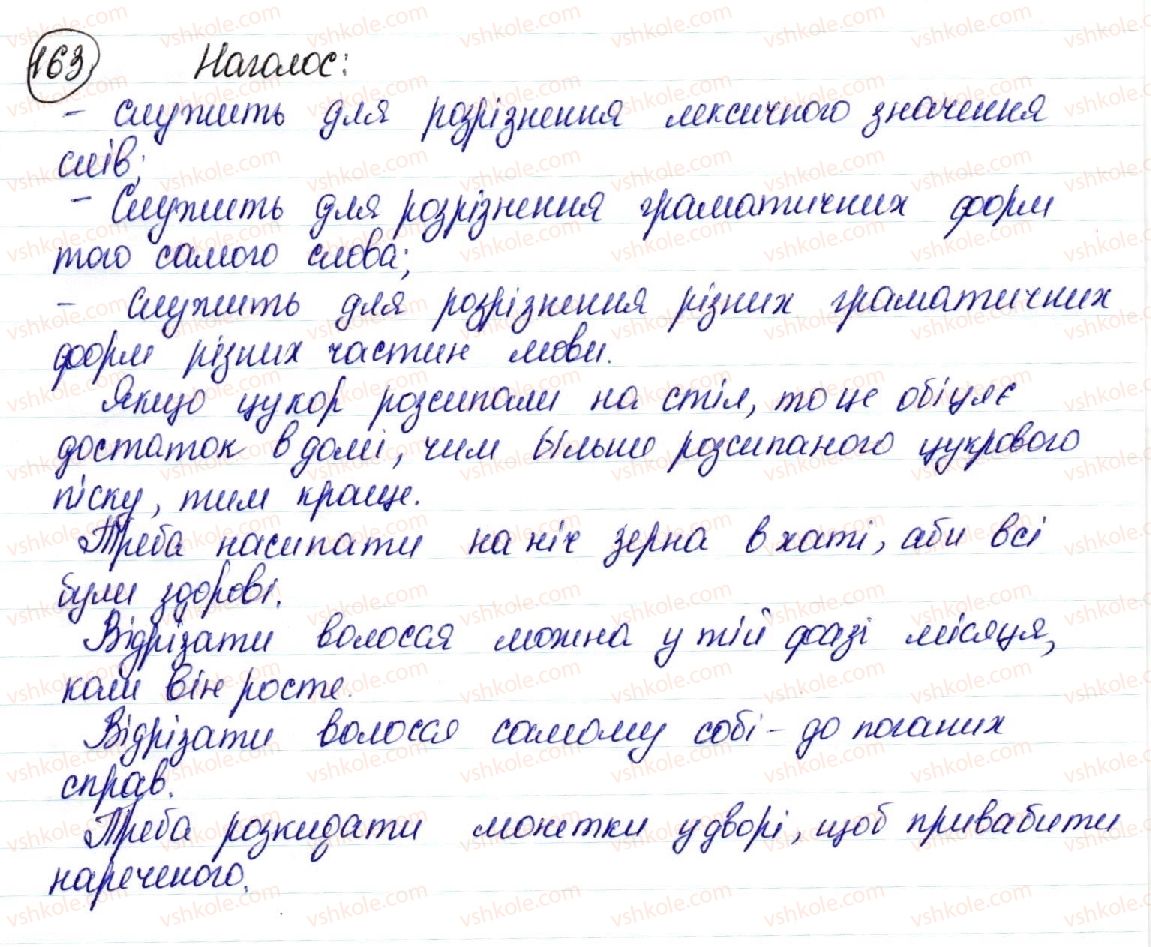 163 Наголос:
- служить для розрізнення лексичного значення
слів;
- Служить для розрізнення граматичних форм
того самого слова;
- служить для розрізнення різних граматичних
форм різних частин мови.
Якщо цукор розсипали на стіл, то це обіцяє
достаток в домі, чим більше розсипаного цукрового
піску, тим краще.
Треба насипати на ніч зерна в хаті, аби всі
були здорові.
Відрізати волосся можна у тій фазі місяця,
коли він росте.
Відрізати волосся самому собі - до поганих
справ.
Треба розкидати монетки у дворі, щоб привабити
нареченого.